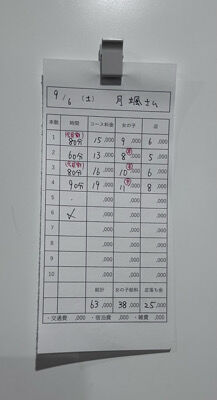 9/6 (土) 月颯さん
本数 時間 コース料金 女の子 店
1 80分 15,000 9,000 6,000
2 60分 13,000 8,000 5,000
3 80分 16,000 10,000 6,000
4 90分 19,000 11,000 8,000
5 ,000 ,000 ,000
6 ,000 ,000 ,000
7 ,000 ,000 ,000
8 ,000 ,000 ,000
9 ,000 ,000 ,000
10 ,000 ,000 ,000
総計 女の子給料 店落ち金
63,000 38,000 25,000
・交通費 ,000 ・宿泊費 ,000 ・雑費 ,000